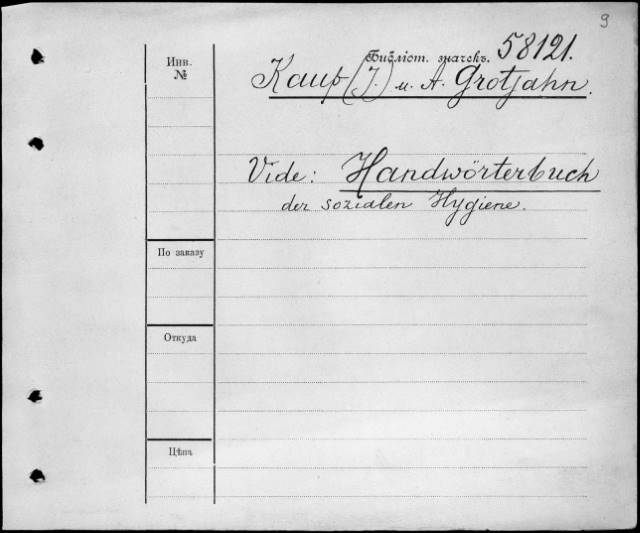 9
Инв.
№
Библіот. значекъ. 58121.
Kaup (J.) u. A. Grotjahn.
Vide: Handwörterbuch
der sozialen Hygiene.
По заказу
Откуда
Цѣна